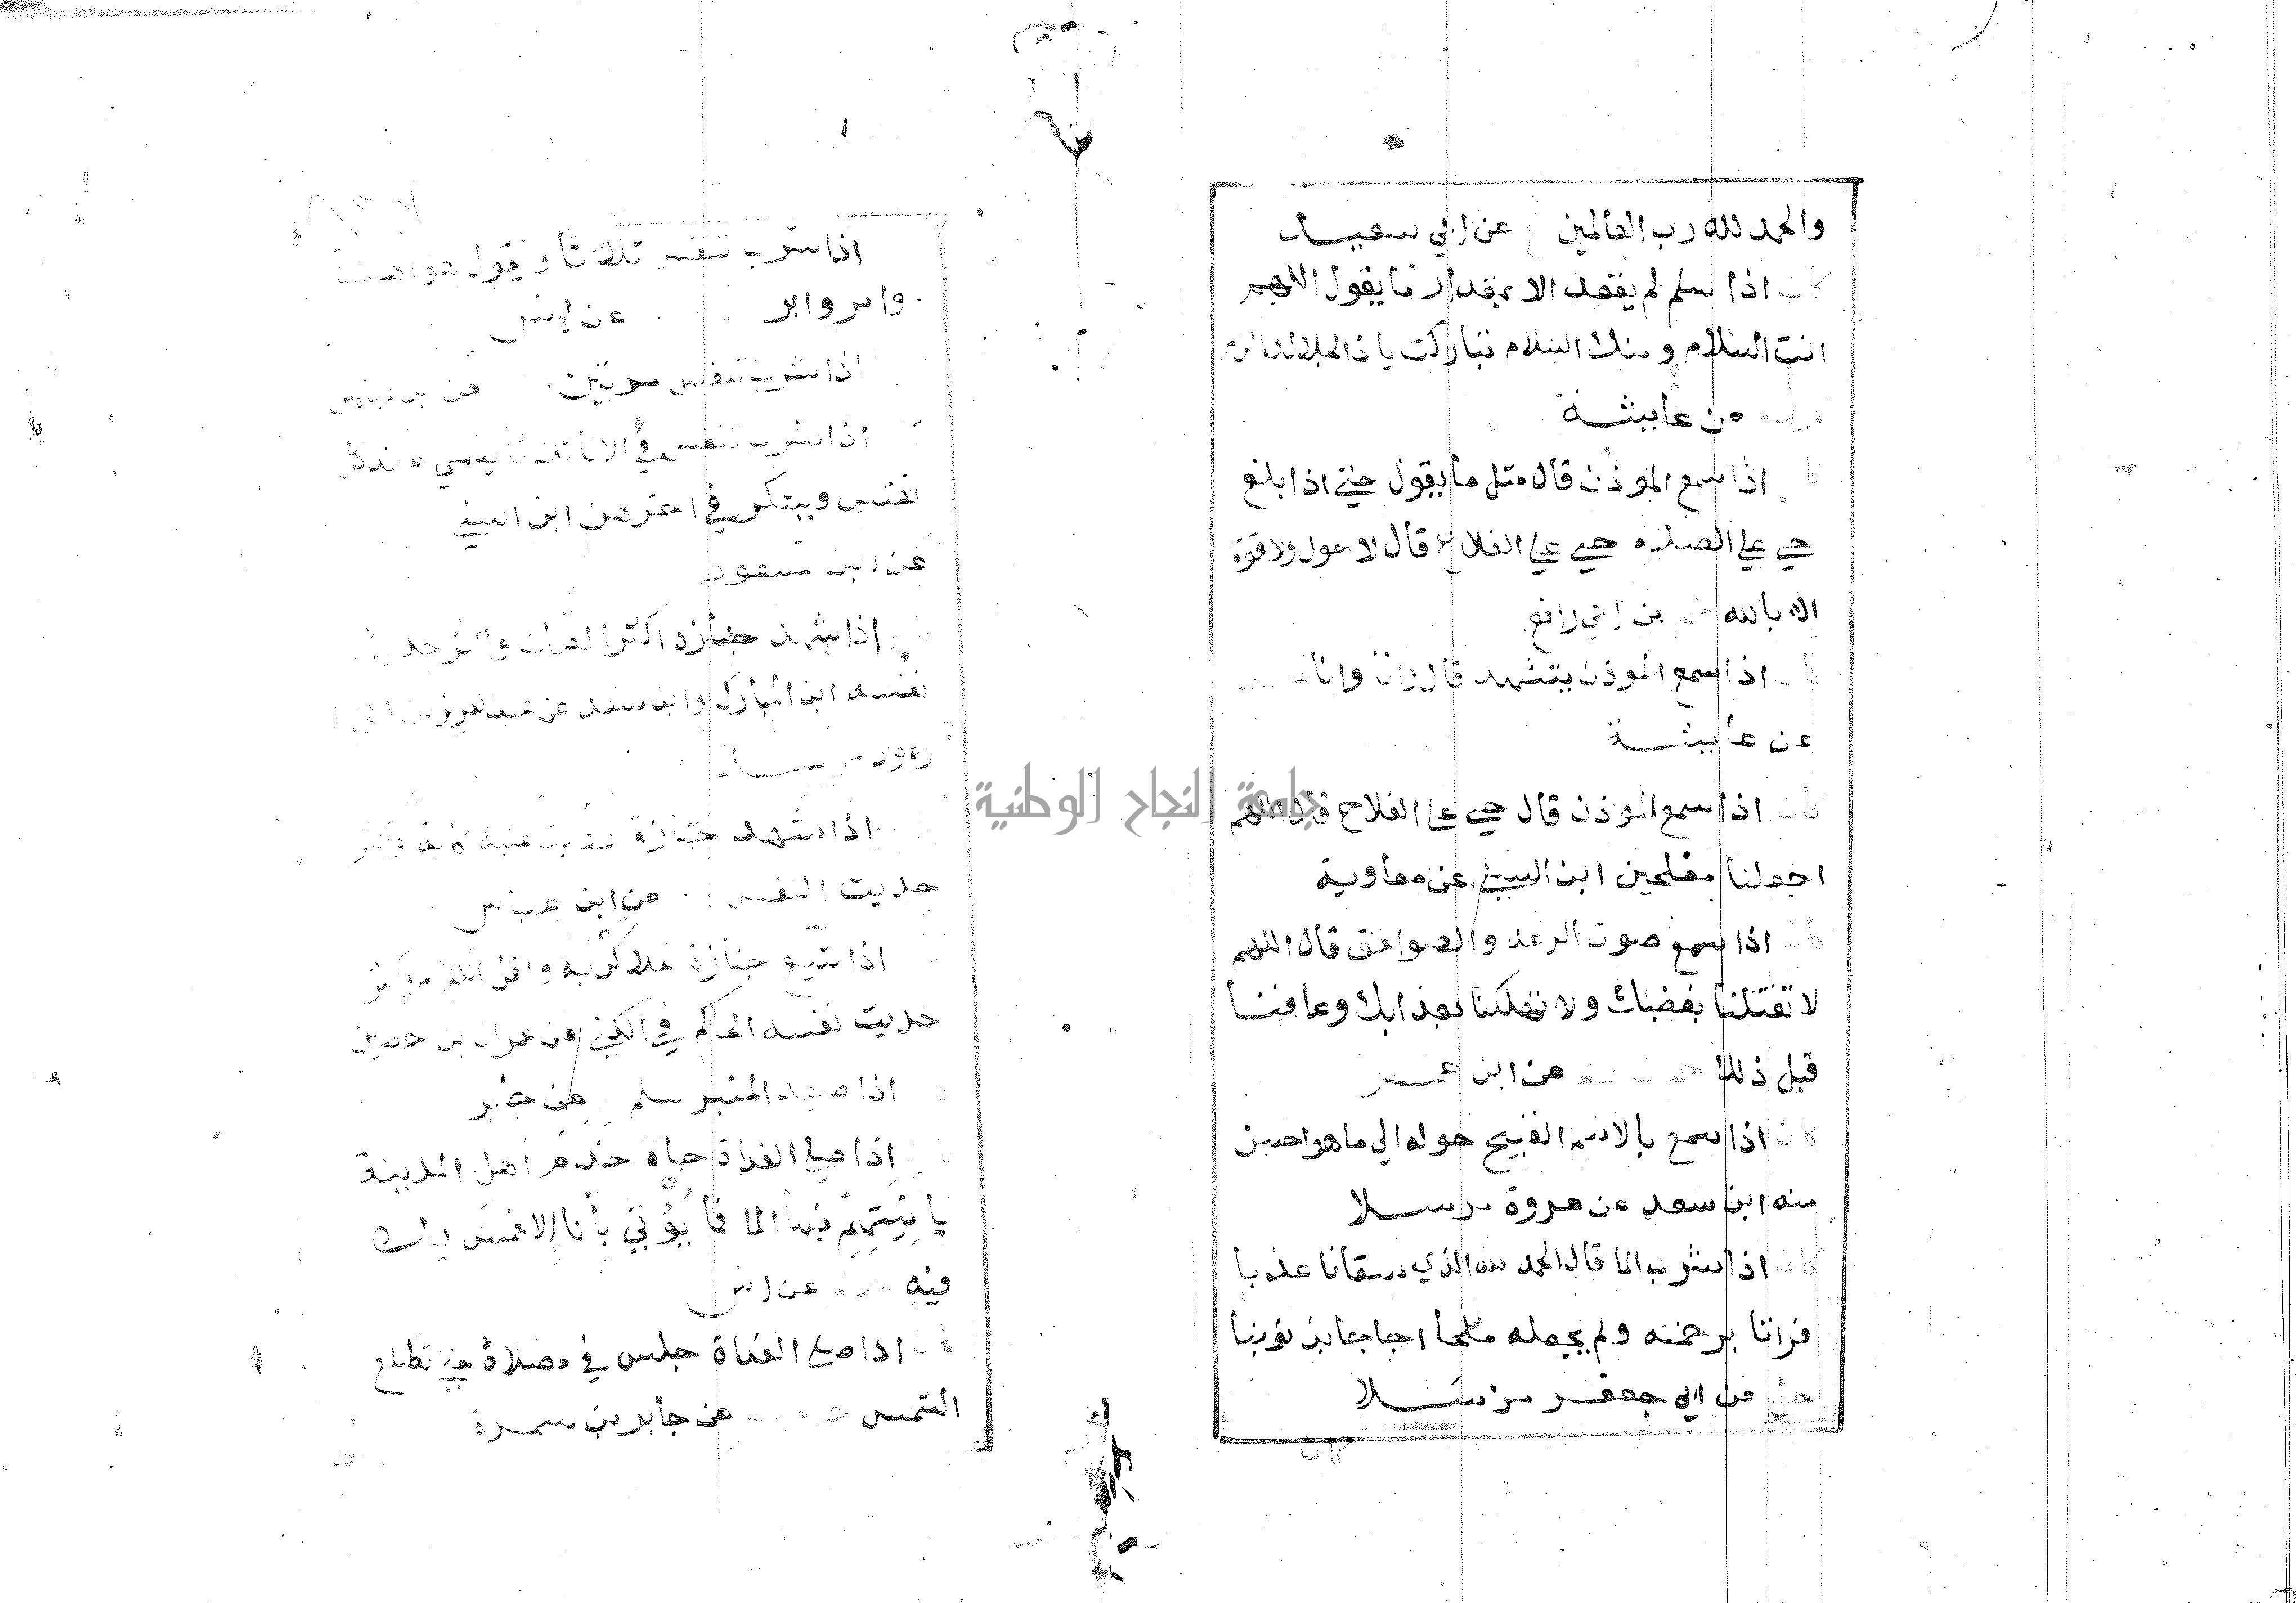 والحمد لله رب العالمين عن ابي سعيد
كان اذا سلم لم يقعد الا بمقدار ما يقول اللهم
انت السلام ومنك السلام تباركت يا ذا الجلال
عن عايشة
اذا سمع الموذن قال مثل ما يقول حتي اذا بلغ
حي علي الصلاه حي علي الفلاح قال لا حول ولا قوة
الا بالله عن ابي رافع
كان اذا سمع الموذن يتشهد قال وانا وانا
عن عايشة
كان اذا سمع الموذن قال حي علي الفلاح قال اللهم
اجعلنا مفلحين ابن السني عن معاوية
كان اذا سمع صوت الرعد والصواعق قال اللهم
لا تقتلنا بغضبك ولا تهلكنا بعذابك وعافنا
قبل ذلك عن ابن عمر
كان اذا سمع بالاسم القبيح حوله الي ما هو احسن
منه ابن سعد عن عروة مرسلا
كان اذا شرب الما قال الحمد لله الذي سقانا عذبا
فراتا برحمته ولم يجعله ملحا اجاجا بذنوبنا
حل عن ابي جعفر مرسلا
كان
اذا شرب تنفس ثلاثا ويقول هو اهنا
وامر وابر عن انس
اذا شرب تنفس مرتين
اذا شرب تنفس في الانا ثلاثا يسمي عند كل
نفس ويشكر في اخرهن ابن السني
عن ابن مسعود
اذا شهد جنازه اكثر الصمات واكثر حديث
نفسه ابن المبارك وابن سعد عن عبد العزيز بن ابي
رواد مرسلا
اذا شهد جنازة عليه كابة واكثر
حديث النفس عن ابن عباس
اذا شيع جنازة علا كربه واقل الكلام واكثر
حديث نفسه الحاكم في الكني عن عمران بن حصين
اذا صعد المنبر سلم عن جابر
اذا صلي الغداة جاه خدم اهل المدينة
بانيتهم فيها الما فما يؤتي بانا الا غمس يده
فيه عن انس
كان اذا صلي الغداة جلس في مصلاه حتي تطلع
الشمس عن جابر بن سمرة
جامعة النجاح الوطنية